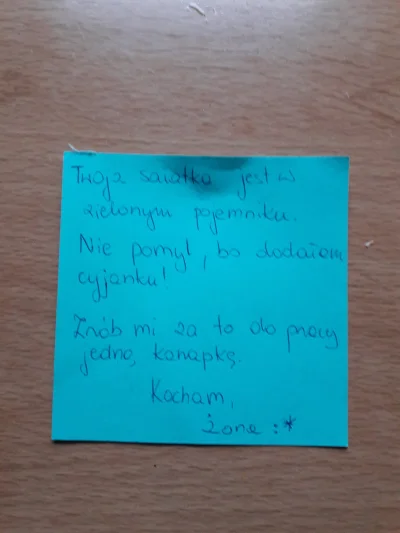 Twoja sałatka jest w
zielonym pojemniku.
Nie pomyl, bo dodałam
cyjanku!
Zrób mi za to do pracy
jedną kanapkę.
Kocham,
żona :*